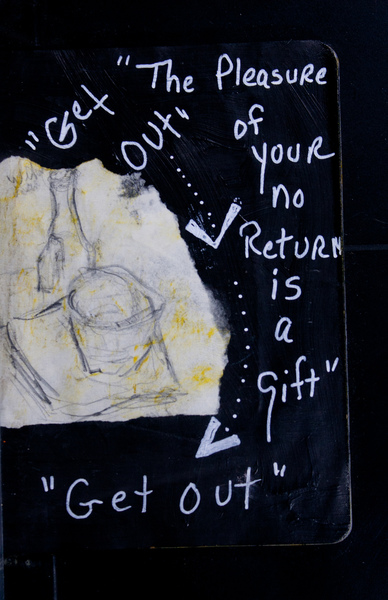 "Get
Out"
"The Pleasure
of
your
no
Return
is
a
Gift"
"Get out"